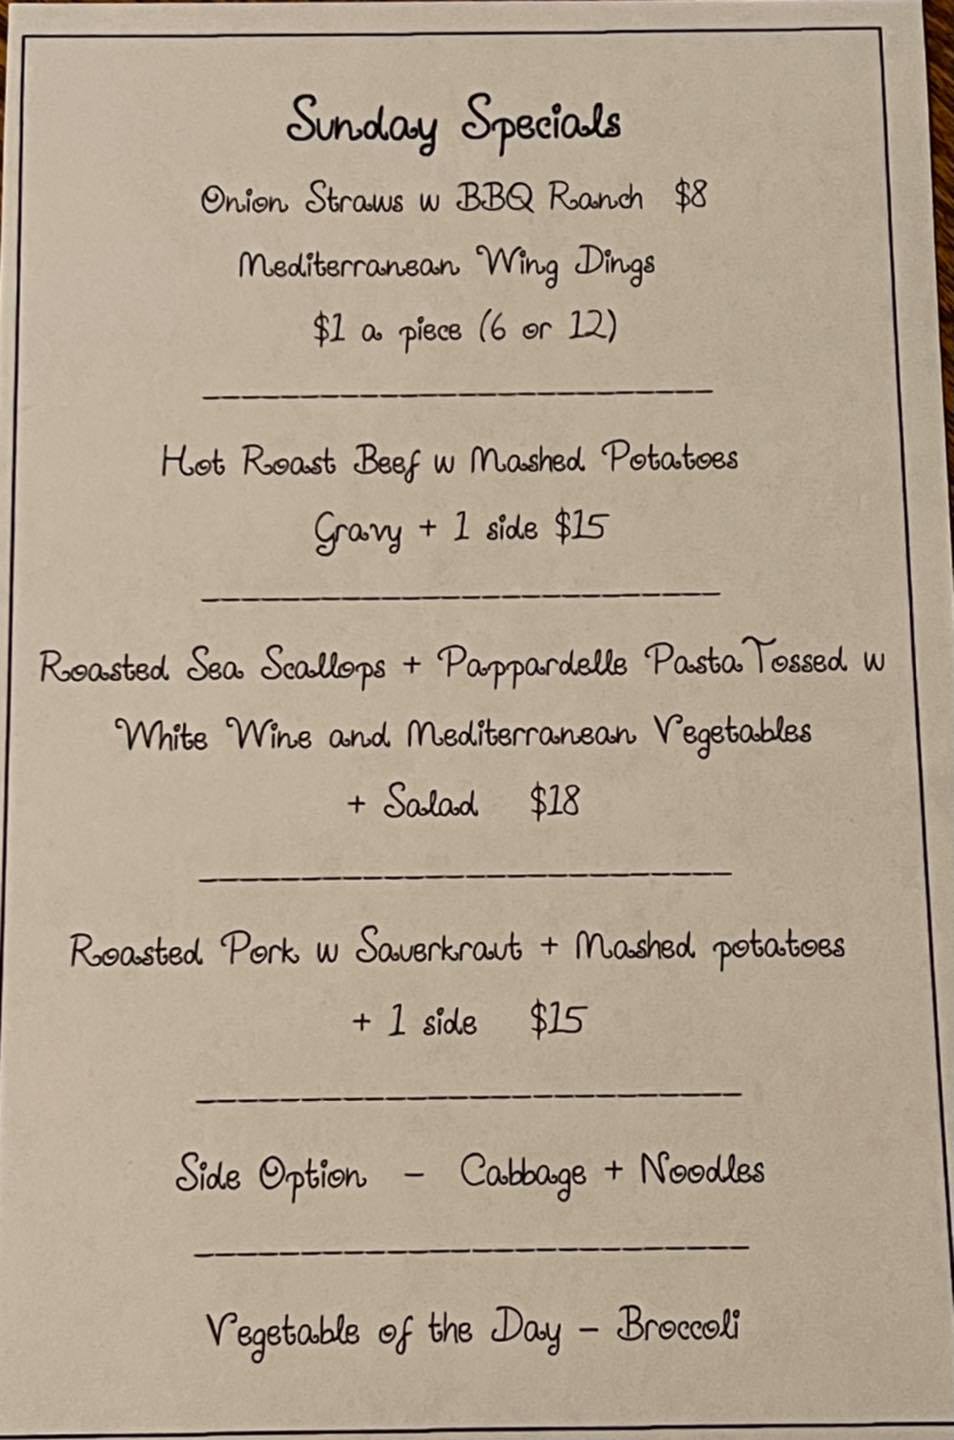 Sunday Specials
Onion Straws w BBQ Ranch $8
Mediterranean Wing Dings
$1 a piece (6 or 12)
Hot Roast Beef w Mashed Potatoes
Gravy + 1 side $15
Roasted Sea Scallops + Pappardelle Pasta Tossed w
White Wine and Mediterranean Vegetables
+ Salad $18
Roasted Pork w Sauerkraut + Mashed potatoes
+ 1 side $15
Side Option - Cabbage + Noodles
Vegetable of the Day - Broccoli